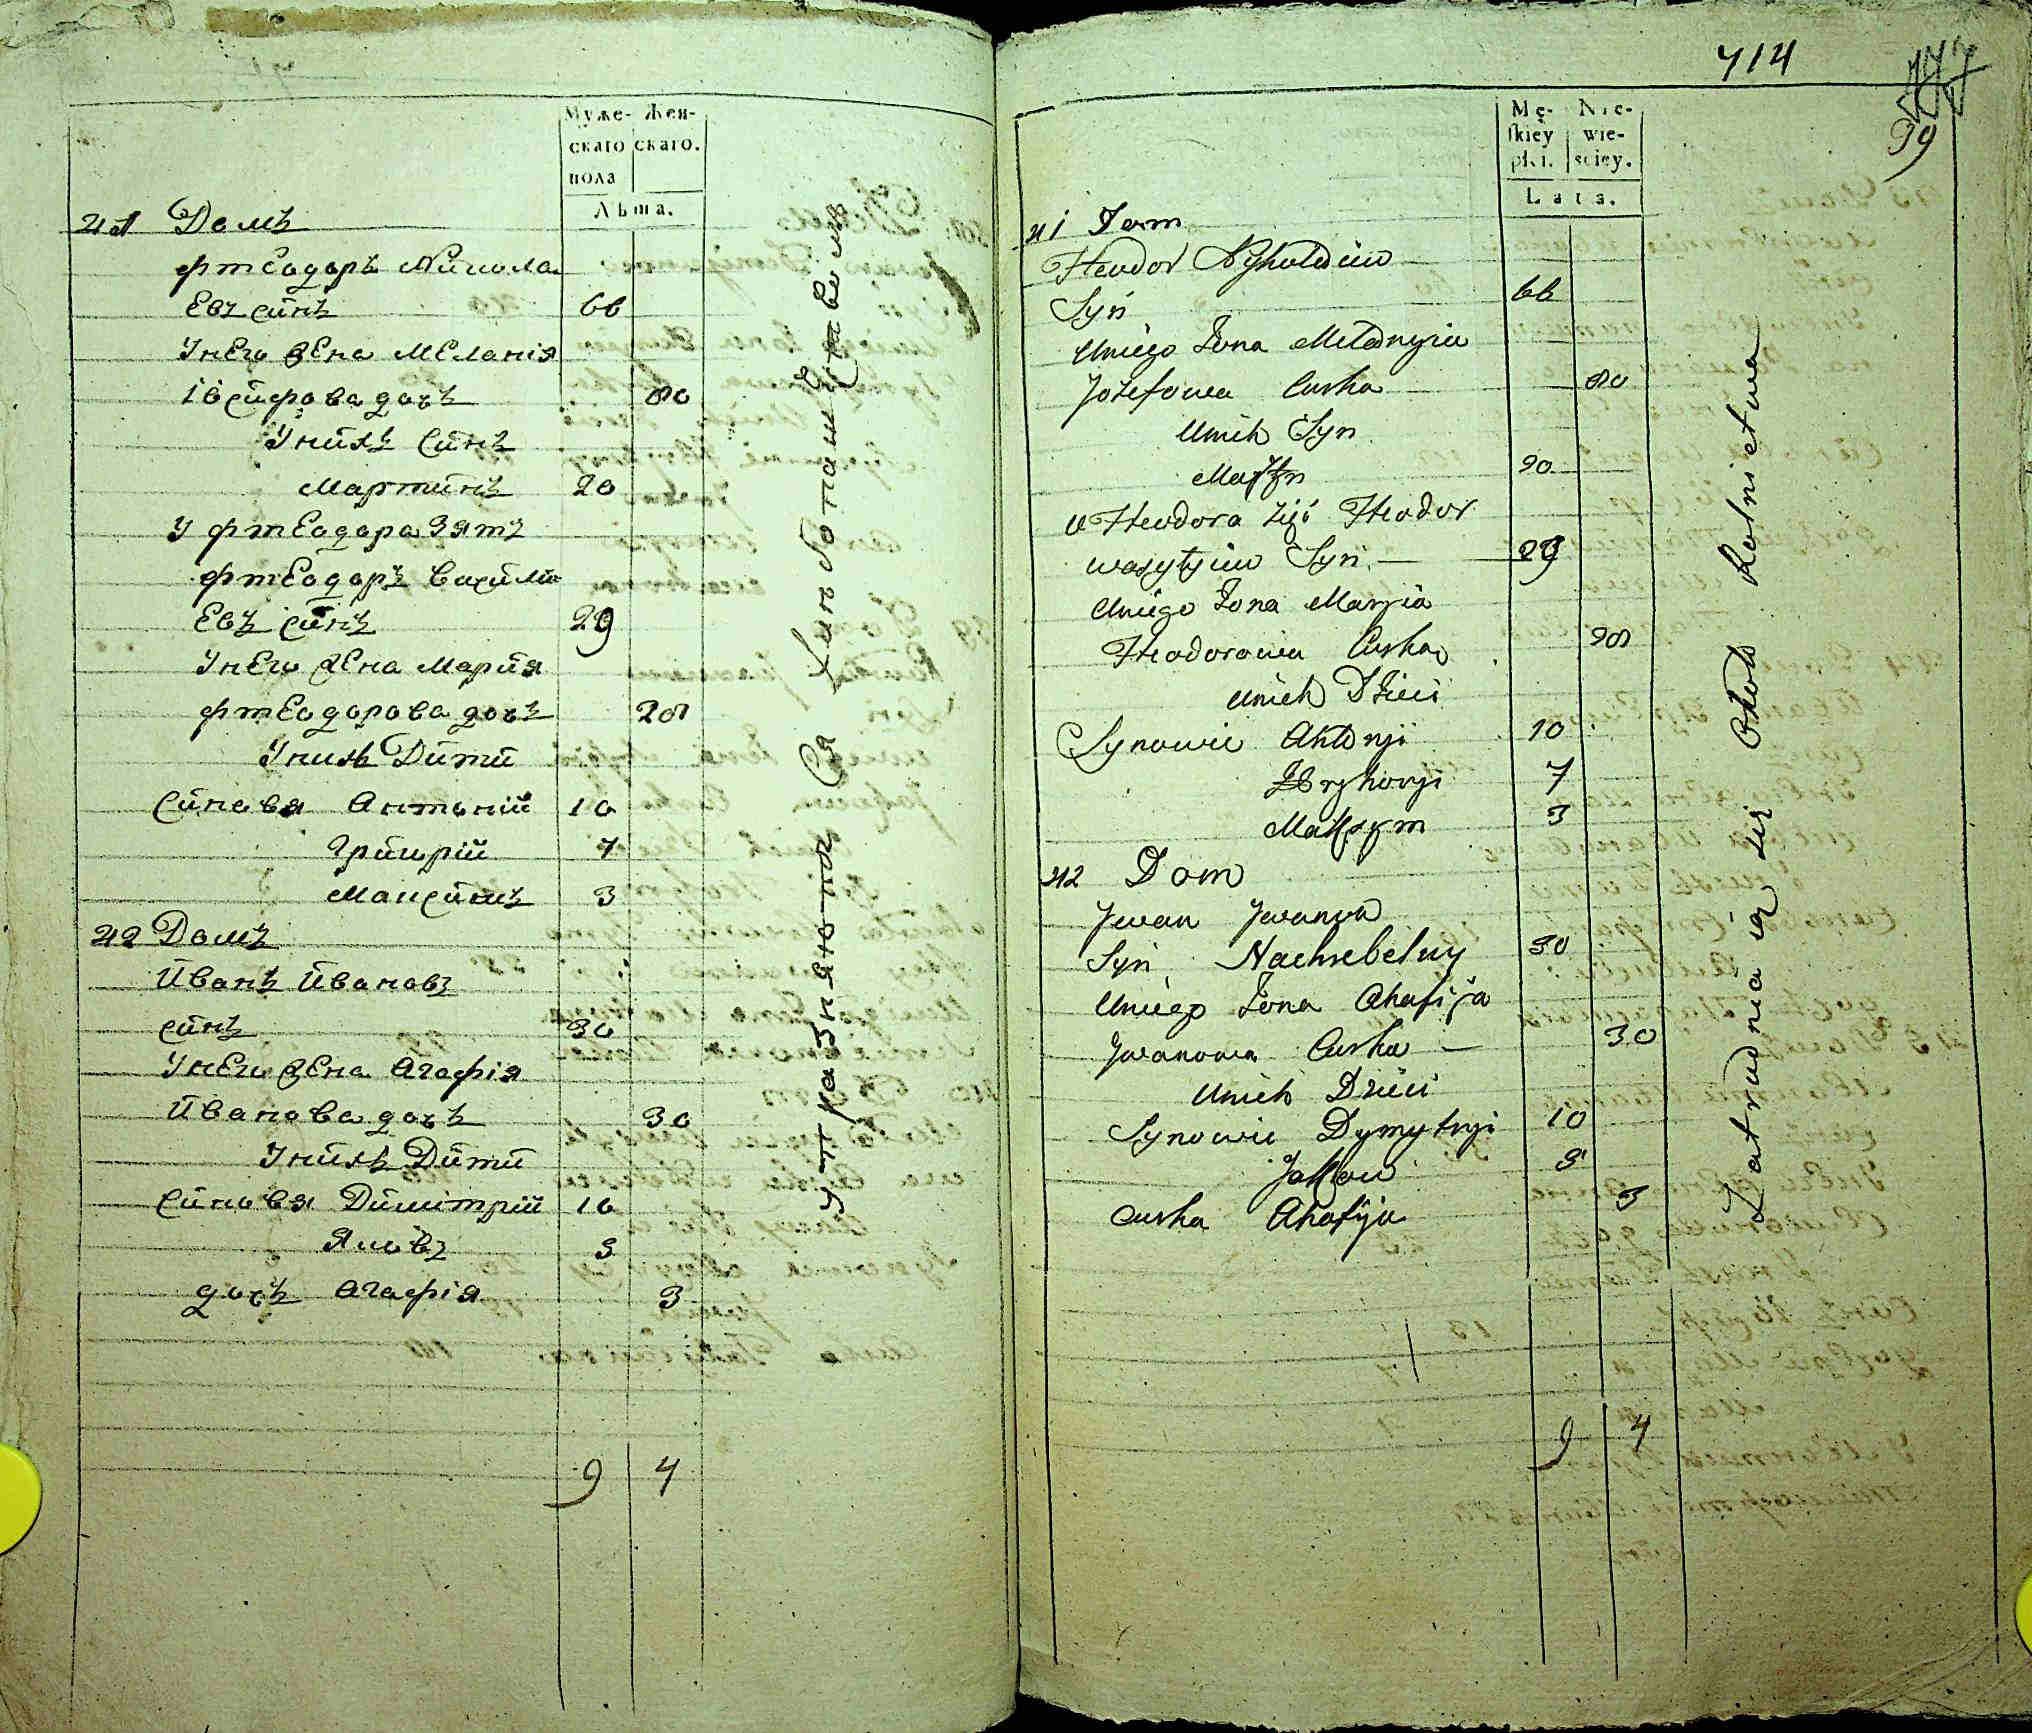 Муже- Жен-
скаго скаго.
пола
Лѣта.
41 Домъ
фтеодоръ Никола
евъ синъ 66
Унего жена Меланія
Іосифова дочъ 80
Унихъ Синъ
Мартинъ 20
У фтеодора Зять
фтеодоръ васили
евъ синъ 29
Унего жена Мария
фтеодорова дочъ 28
Унихъ Дити
Синовя Антоній 10
Григорій 7
Максимъ 3
42 Домъ
Иванъ Ивановъ
синъ 30
Унего жена Агафія
Иванова дочъ 30
Унихъ Дити
Синовя Димитрій 10
Яковъ 5
дочъ Агафія 3
9 4
714
99
Mę- Nie-
skiey wie-
płci. sciey.
Lata.
41 Dom
Hteodor Nykołaiiw
Syn 66
Uniego Żona Mełanyia
Jozefowa Curka 80
Unich Syn
Martyn 20
U Hteodora Zięć Hteodor
wasyłyiw Syn 29
Uniego Żona Marria
Hteodorowa Curka 28
Unich Dzieci
Synowie Antonyi 10
Hryhoryi 7
Maksym 3
42 Dom
Jwan Jwanow
Syn Nachrebelny 30
Uniego Żona Ahafija
Jwanowa Curka 30
Unich Dzieci
Synowie Dymytryi 10
Jakow 5
Curka Ahafija 3
9 4
Zatrudniaią się Około Rolnictwa